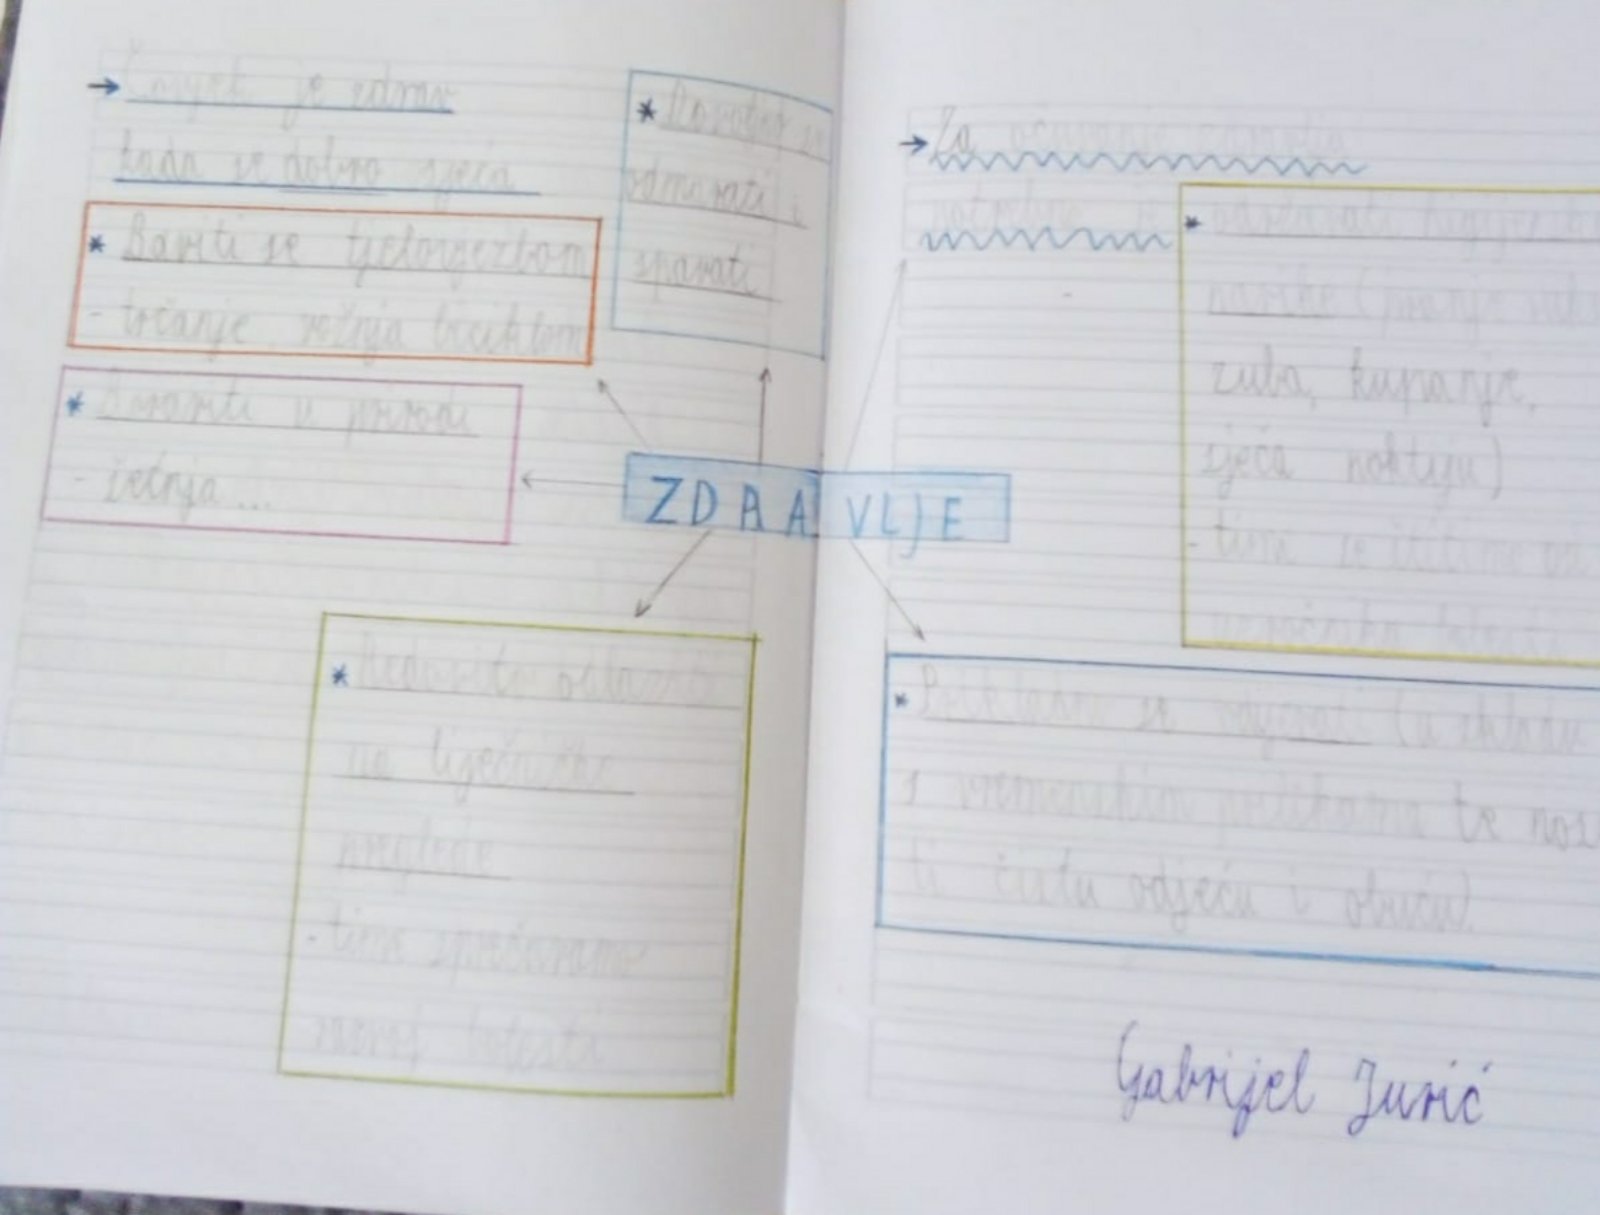 → Čovjek je zdrav
kada se dobro osjeća
* Baviti se tjelovježbom
- trčanje, vožnja biciklom
* Boraviti u prirodi
- šetnja...
* Dovoljno se
odmarati i
spavati
ZDRAVLJE
* Redovito odlaziti
na liječničke
preglede
- time sprečavamo
razvoj bolesti
→ Za očuvanje zdravlja
potrebno je
* održavati
navike (pranje
zuba, kupanje,
sječa noktiju)
- time se štitimo od
bolesti
* Prikladno se odijevati (u skladu
s vremenskim prilikama te nosi
ti čistu odjeću i obuću)
Gabrijel Jurić